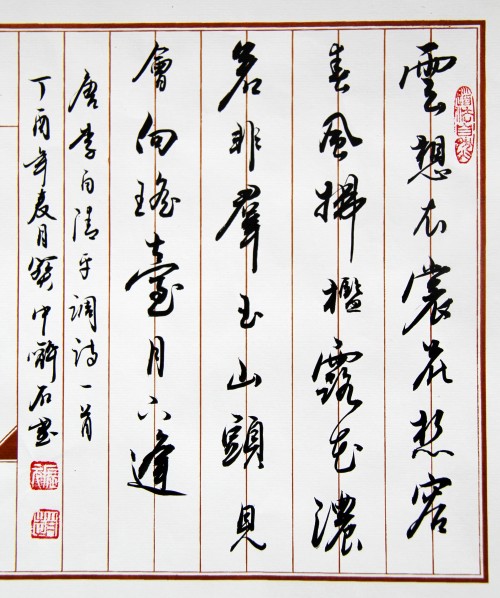 雲想衣裳花想容
春風拂檻露花濃
若非羣玉山頭見
會向瑤臺月下逢
唐李白清平調詩一首
丁酉年夏月
道法自然